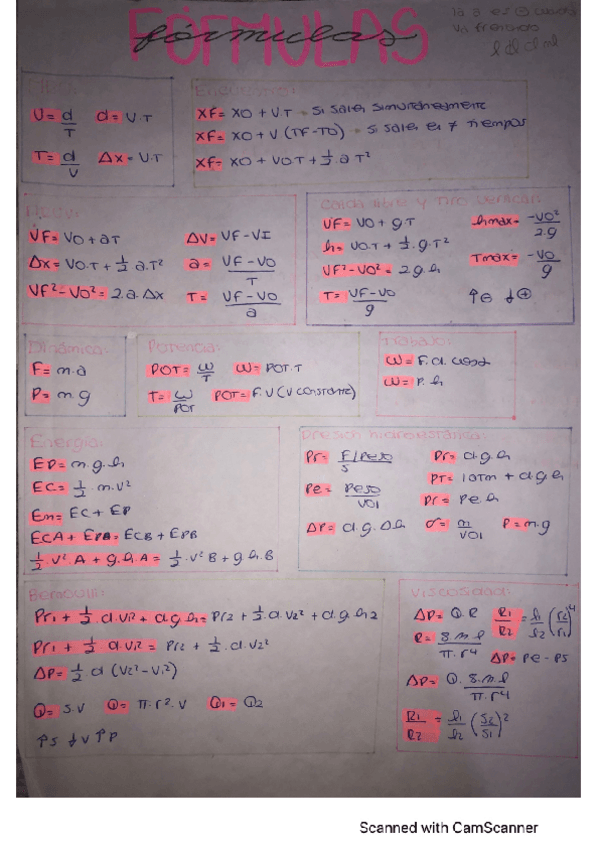 FÓRMULAS
fórmulas
V= d/T   d= V.T
T= d/V   Δx= V.T
Encuentro:
XF= XO + V.T - si salen simultáneamente
XF= XO + V (TF-TO) - si salen en ≠ tiempos
XF= XO + VO T + ½ a T²
MRUV:
VF= VO + aT   ΔV= VF-VI
Δx= VO.T + ½ a.T²   a= VF-VO/T
VF²-VO²= 2.a.Δx   T= VF-VO/a
Caída libre y Tiro vertical:
VF= VO + gT   hmax= -VO²/2.g
h= VO.T + ½.g.T²   Tmax= -VO/g
VF²-VO²= 2.g.h
T= VF-VO/g   ↑⊖ ↓⊕
Dinámica:
F= m.a
P= m.g
Potencia:
POT= W/T   W= POT.T
T= W/POT   POT= F.V (V constante)
Trabajo:
W= F.d.cosα
W= P.h
Energía:
EP= m.g.h
EC= ½.m.V²
Em= EC + EP
ECA + EPA= ECB + EPB
½.V².A + g.h.A= ½.V²B + g.h.B
Presión hidrostática:
Pr= F/Peso/S   Pr= d.g.h
PT= 1ATM + d.g.h
Pe= Peso/VOl   Pr= Pe.h
ΔP= d.g.Δh   d= m/VOl   P=m.g
Bernoulli:
Pr1 + ½.d.V1² + d.g.h1= Pr2 + ½.d.V2² + d.g.h2
Pr1 + ½.d.V1²= Pr2 + ½.d.V2²
ΔP= ½.d (V2²-V1²)
Q= S.V   Q= π.r².V   Q1= Q2
↑S ↓V ↑P
Viscosidad:
ΔP= Q.R   R1/R2= l1/l2 (r2/r1)⁴
R= 8.η.l/π.r4   ΔP= Pe-Ps
ΔP= Q.8.η.l/π.r4
R1/R2= l1/l2 (S2/S1)²
Scanned with CamScanner